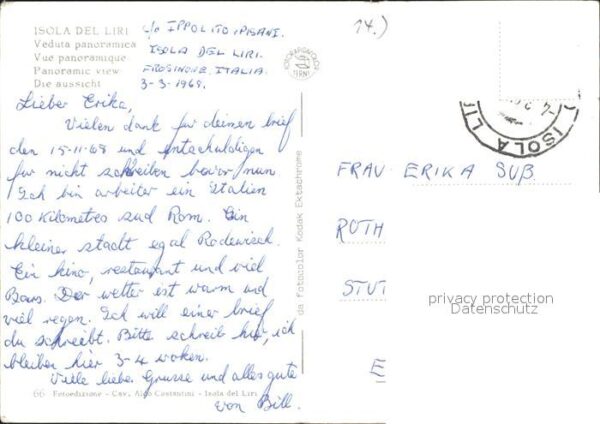 ISOLA DEL LIRI
Veduta panoramica
Vue panoramique
Panoramic view
Die aussicht
c/o IPPOLITO IPISANI.
ISOLA DEL LIRI.
FROSINONE. ITALIA.
3-3-1969.
14.)
Lieber Erika,
Vielen dank fur deinen brief
den 15-11-68 und entschuldigen
fur nicht schreiben bevor nun.
Ich bin arbeiter ein Italien
100 Kilometres sud Rom. Ein
kleiner stadt egal Rodewisch.
Ein kino, restaurant und viel
Bars. Der wetter ist warm und
viel regen. Ich will einer brief
du schreibt. Bitte schreib hier, ich
bleiben hier 3-4 woken.
Viele liebe Grusse und alles gute
von Bill.
66 Fotoedizione - Cav. Aldo Costantini - Isola del Liri
da Fotocolor Kodak Ektachrome
ISOLA LIRI
FRAU ERIKA SUß
ROTH
STUT
E
privacy protection
Datenschutz